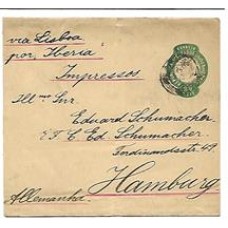 via Lisboa
por "Iberia"
Impressos
Ill mo Snr.
Eduard Schumacher.
Ed. Schumacher.
Ferdinandstr. 49
Hamburg
Allemanha.